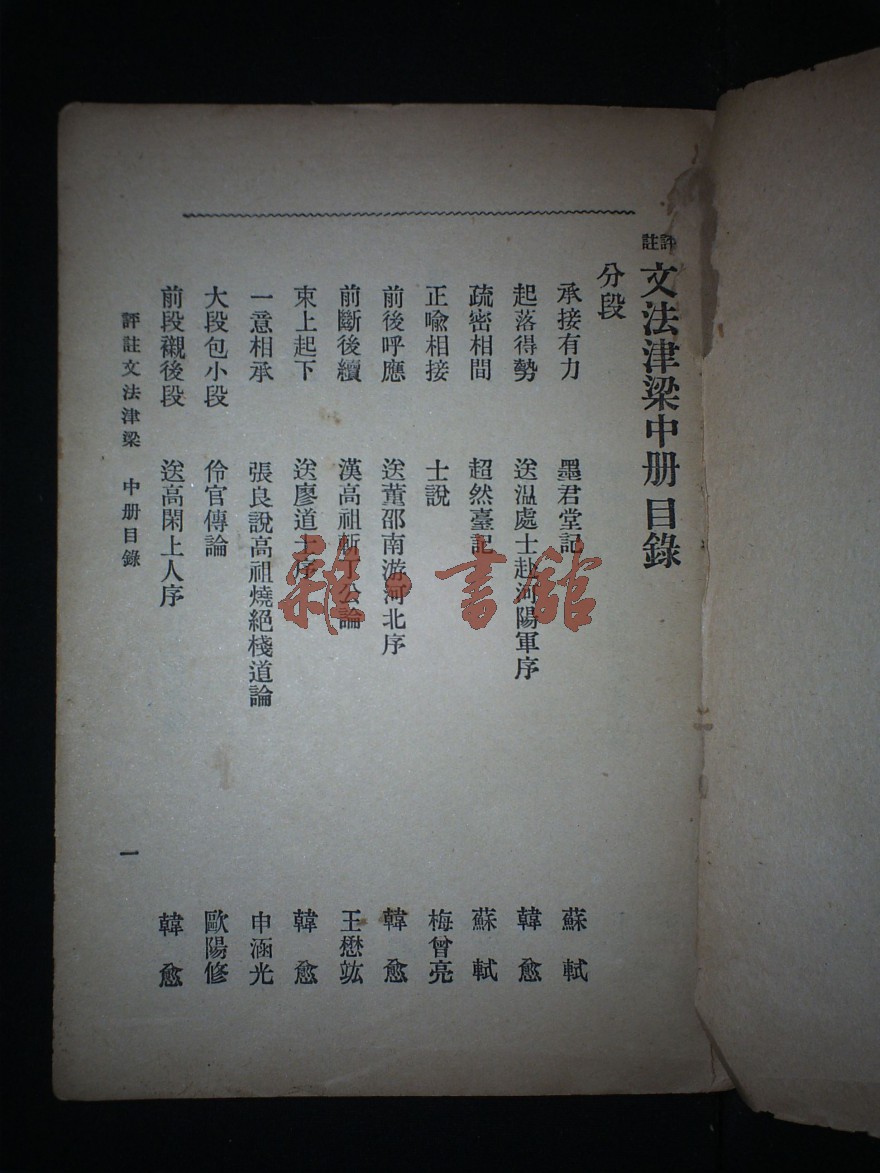 評註文法津梁中册目錄
分段
承接有力 墨君堂記 蘇軾
起落得勢 送温處士赴河陽軍序 韓愈
疏密相間 超然臺記 蘇軾
正喻相接 士說 梅曾亮
前後呼應 送董邵南游河北序 韓愈
前斷後續 漢高祖斬丁公論 王懋竑
束上起下 送廖道士序 韓愈
一意相承 張良說高祖燒絕棧道論 申涵光
大段包小段 伶官傳論 歐陽修
前段襯後段 送高閑上人序 韓愈
評註文法津梁 中册目錄 一
雜·書館